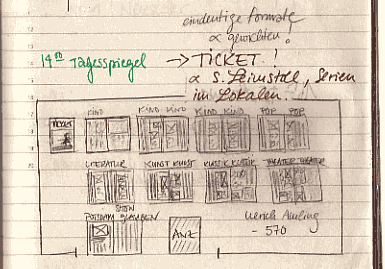 eindeutige Formate
∝ gewichten!
14⁰⁰ Tagesspiegel → TICKET!
∝ S. Leinstoll, Serien
im Lokalen.
TICKET KINO KINO KINO KINO KINO POP POP
LITERATUR KUNST KUNST KLASSIK KLASSIK THEATER THEATER
POTSDAM
ANZ
Ulrich Amling
- 570